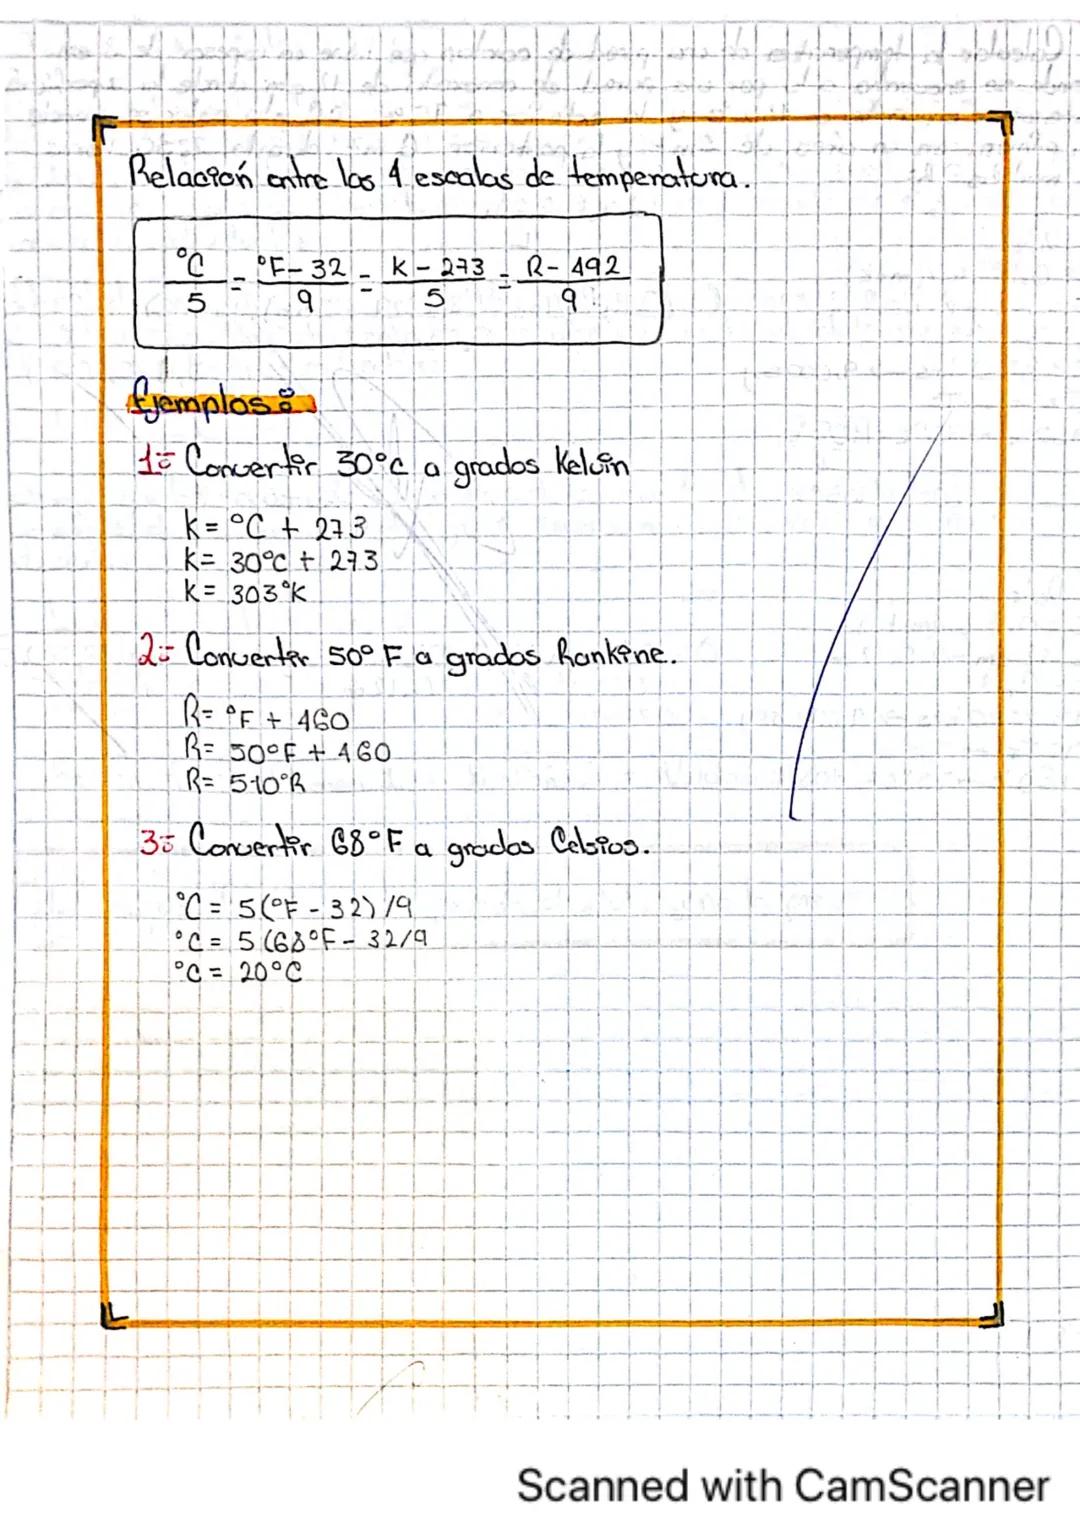 Relación entre las 4 escalas de temperatura.
°C/5 = °F-32/9 = K-273/5 = R-492/9
Ejemplos:
1.- Convertir 30°C a grados Kelvin
K = °C + 273
K = 30°C + 273
K = 303°K
2.- Convertir 50°F a grados Rankine.
R = °F + 460
R = 50°F + 460
R = 510°R
3.- Convertir 68°F a grados Celsius.
°C = 5(°F - 32)/9
°C = 5(68°F - 32/9
°C = 20°C
Scanned with CamScanner